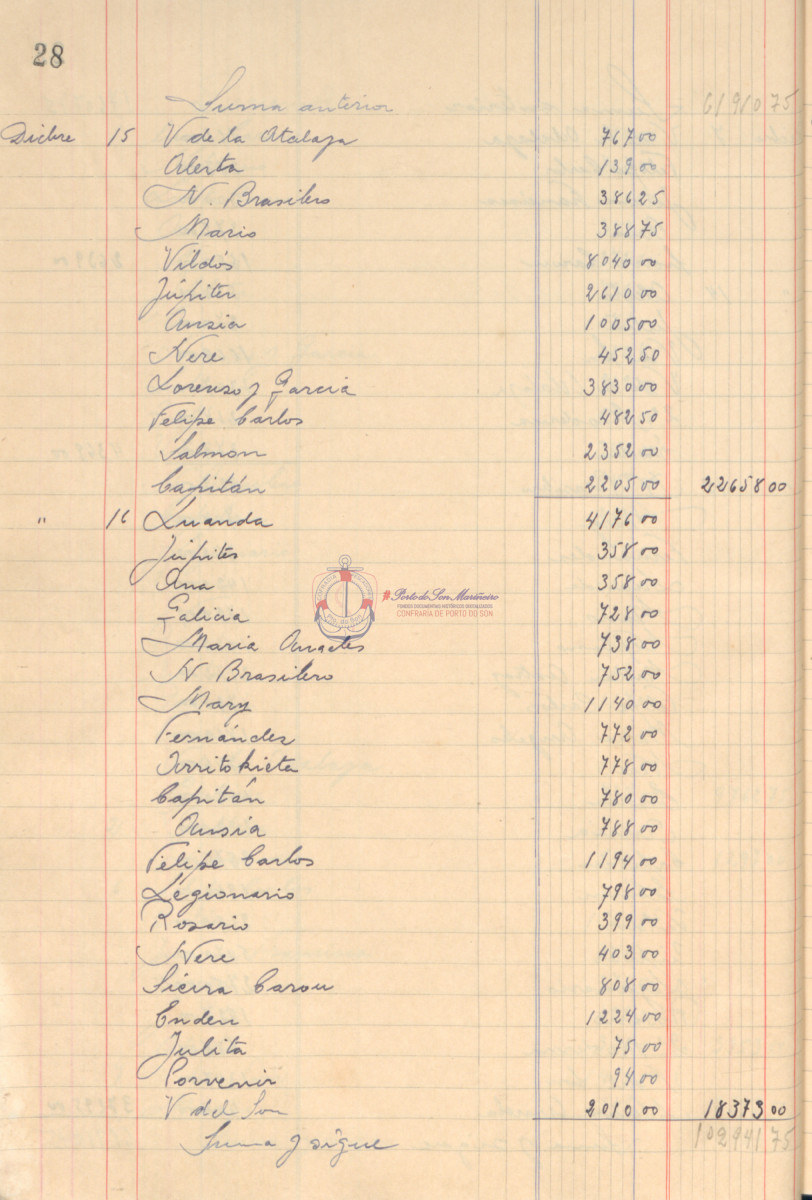 28
Suma anterior 61910 75
Dicbre 15 V de la Atalaya 767 00
Alerta 139 00
N. Brasilero 386 25
Mario 388 75
Vildós 8040 00
Júpiter 2610 00
Ansia 1005 00
Nere 452 50
Lorenzo y Garcia 3830 00
Felipe Carlos 482 50
Salmon 2352 00
Capitán 2205 00 22658 00
" 16 Luanda 4176 00
Júpiter 358 00
Ana 358 00
Galicia 728 00
Maria Angeles 738 00
N Brasilero 752 00
Mary 1140 00
Fernández 772 00
Territokieta 778 00
Capitán 780 00
Ansia 788 00
Felipe Carlos 1194 00
Legionario 798 00
Rosario 399 00
Nere 403 00
Sieira Carou 808 00
Enden 1224 00
Julita 75 00
Porvenir 94 00
V del Son 2010 00 18373 00
Suma y sigue 102941 75
#Porto do Son Mariñeiro
FONDOS DOCUMENTAIS HISTÓRICOS DIXITALIZADOS
CONFRARIA DE PORTO DO SON